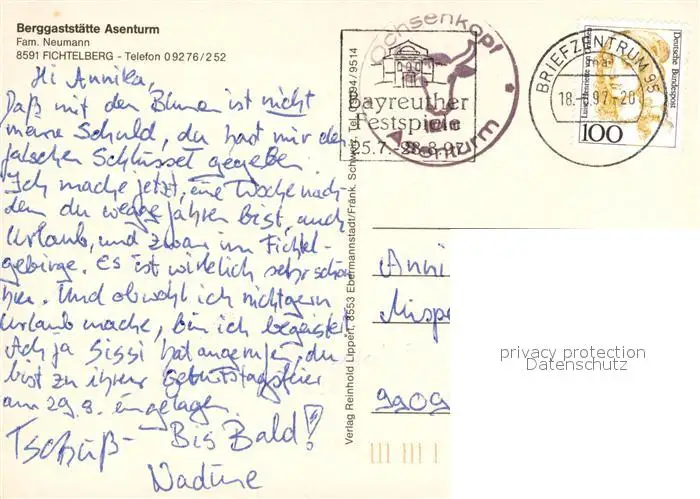 Berggaststätte Asenturm
Fam. Neumann
8591 FICHTELBERG - Telefon 09276/252
Hi Annika,
Daß mit den Blumen ist nicht
meine Schuld, du hast mir den
falschen Schlüssel gegeben.
Ich mache jetzt, eine Woche nach-
dem du weggefahren bist, auch
Urlaub, und zwar im Fichtel-
gebirge. Es ist wirklich sehr schön
hier. Und obwohl ich nicht gern
Urlaub mache, bin ich begeistert
Ach ja Sissi hat angerufen, du
bist zu ihrer Geburtstagsfeier
am 29.8. eingeladen.
Tschüß - Bis Bald!
Nadine
Verlag Reinhold Lippert, 8553 Ebermannstadt/Fränk. Schweiz, Tel. 09194/9514
Ochsenkopf
Asenturm
Bayreuther
Festspiele
25.7.-28.8.97
BRIEFZENTRUM 95
18.8.97-20
Deutsche Bundespost
100
Anni
Misp
9909
privacy protection
Datenschutz